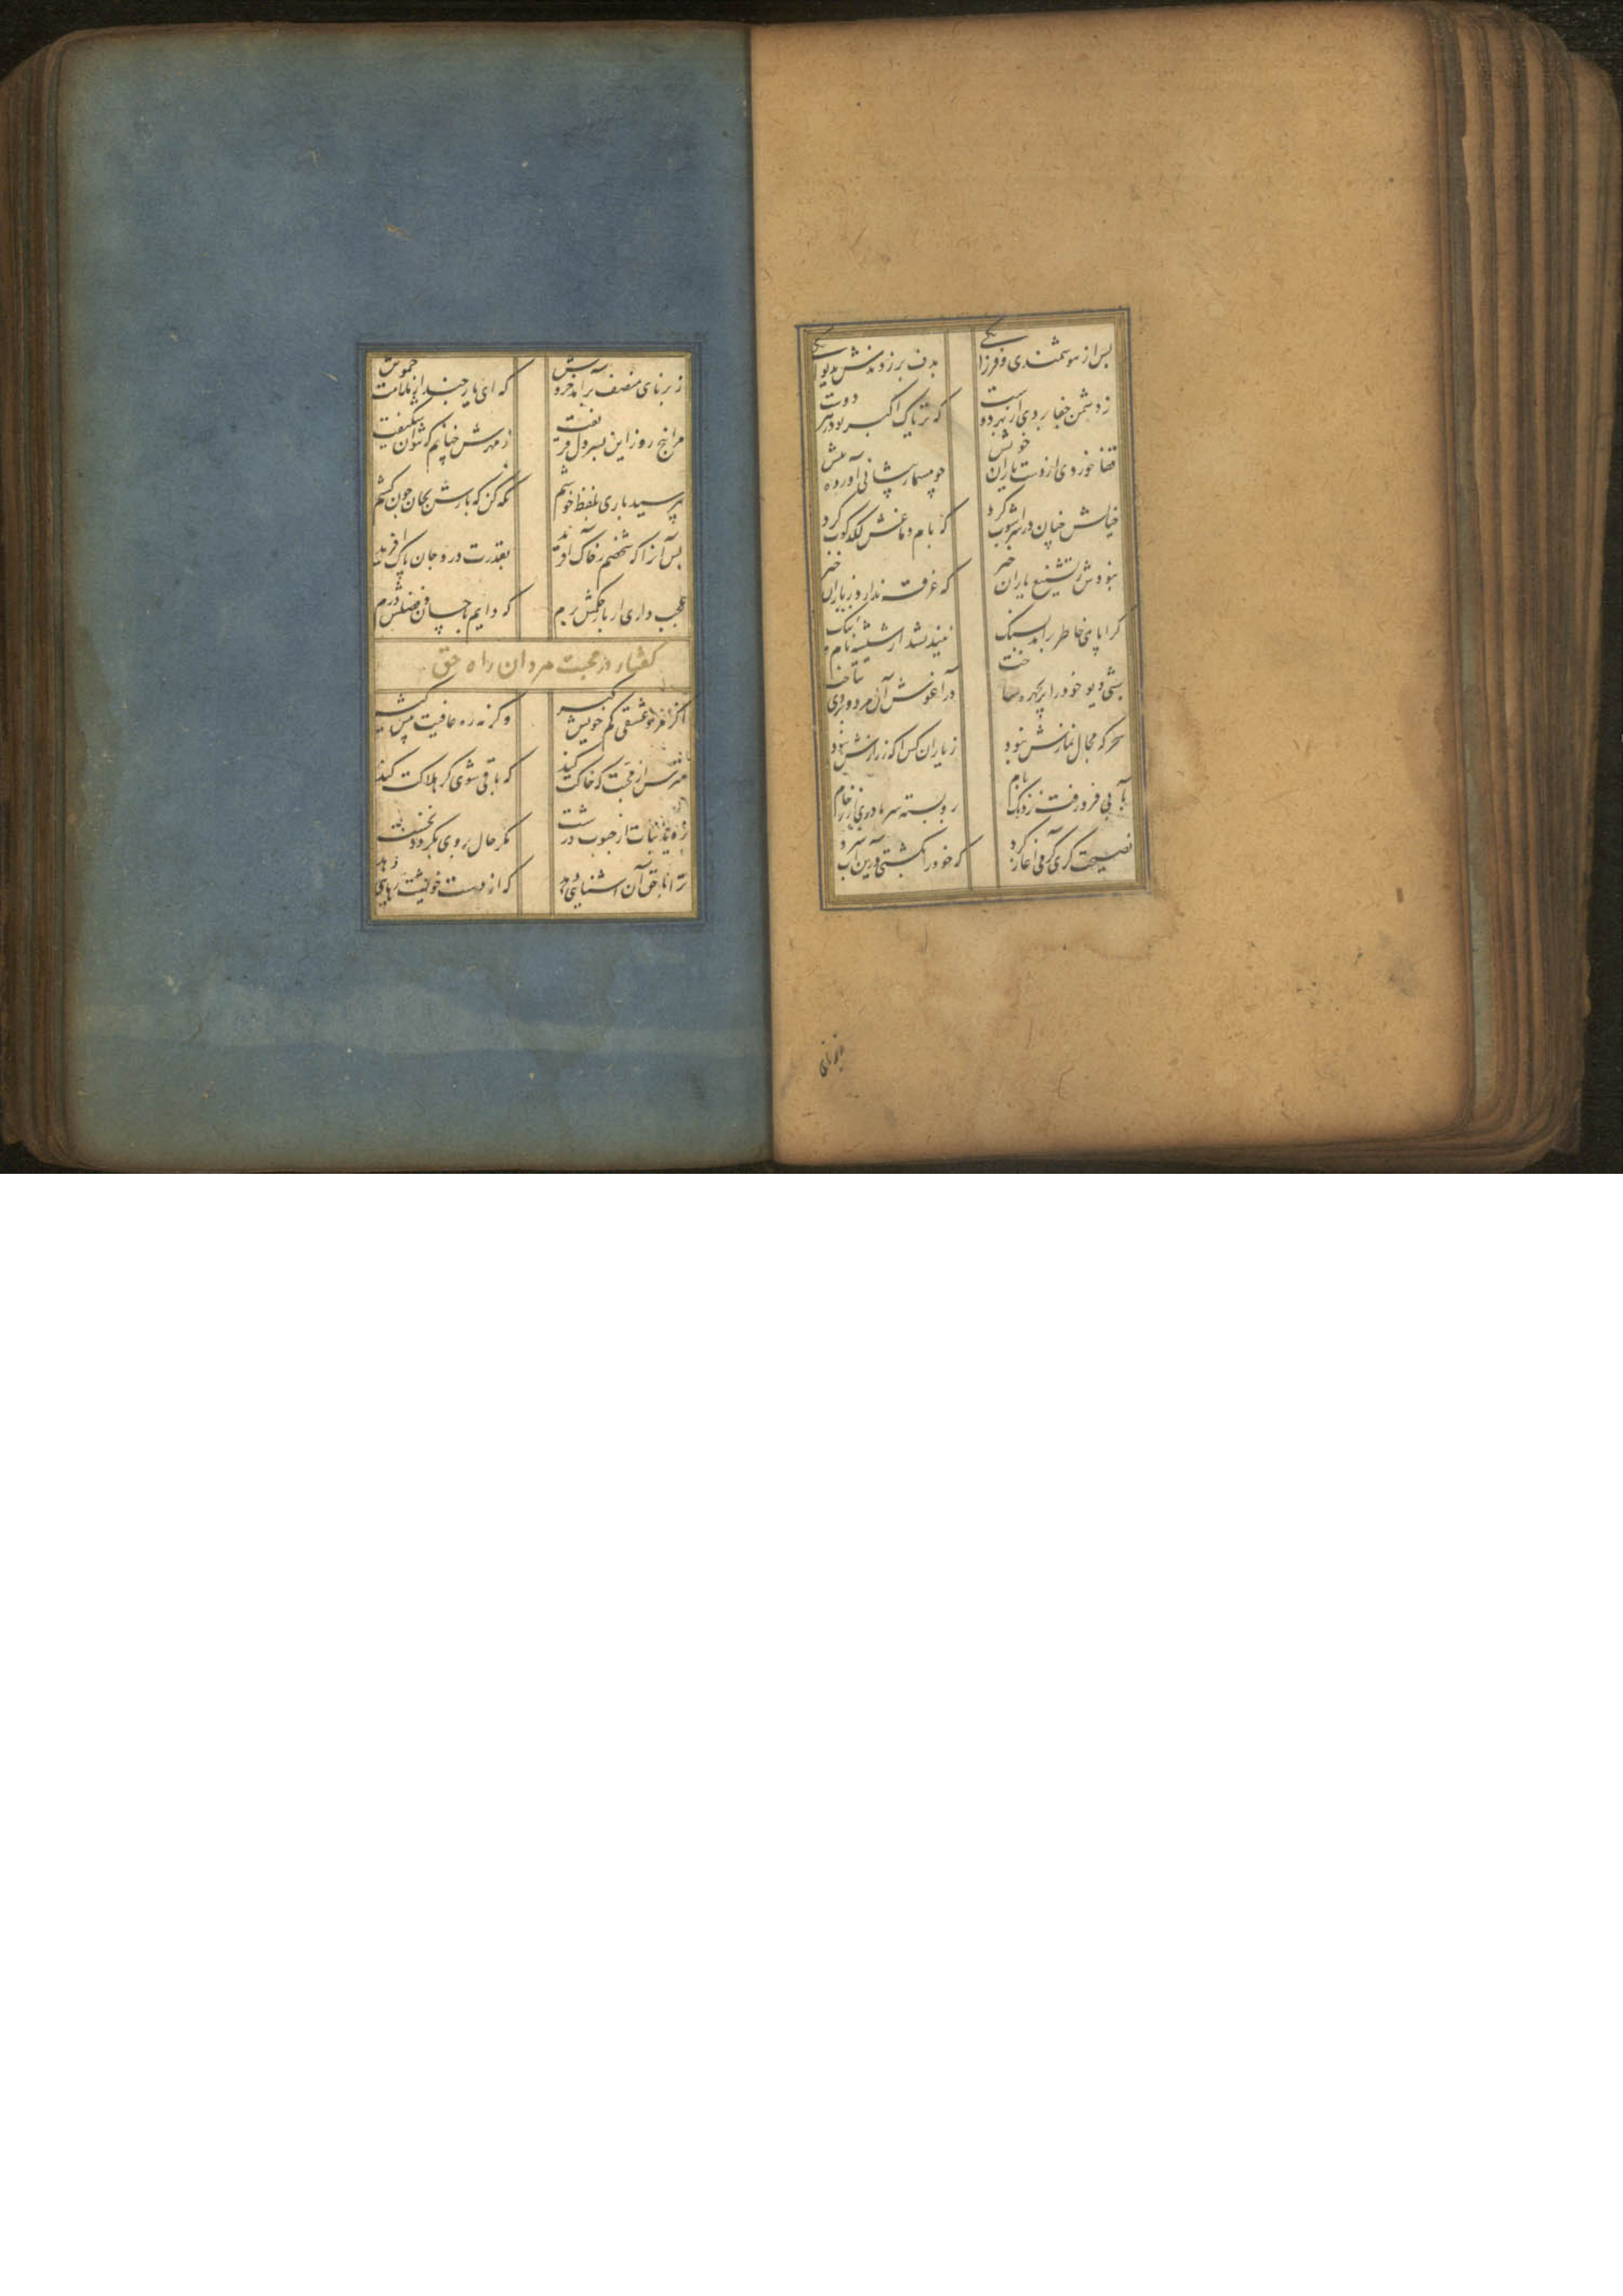 پس از هوشمندی و فرزانگی بدف بر زدندش بدیوانگی
ز دشمن جفا بردی از بهر دوست که تریاک اکبر بود زهر دوست
قفا خوردی از دست یاران خویش چو مسمار پیشانی آورده پیش
خیالش چنان در سر آشوب کرد که بام دماغش لکدکوب کرد
نبودش ز تشنیع یاران خبر که غرقه ندارد ز باران خبر
کرا پای خاطر برآمد بسنک نیندیشد از شیشه نام و ننک
شبی دیو خود را پریچهره ساخت در آغوش آن مرد و بروی بتاخت
سحرکه مجال نمازش نبود ز یاران کس آکه ز رازش نبود
بآبی فرو رفت نزدیک بام برو بسته سرما دری از رخام
نصیحت کری کرمی آغاز کرد که خود را بکشتی درین آب سرد
ز برنای منصف برآمد خروش که ای یار چند از ملامت خموش
مرا پنج روز این پسر دل فریفت ز مهرش چنانم که نتوان شکیفت
نپرسید باری بلفظ خوشم نکه کن که بارش بجان چون کشم
پس آنرا که شخصم ز خاک آفرید بقدرت درو جان پاک آفرید
عجب داری ار بار حکمش برم که دایم باحسان و فضلش درم
کفتار در محبت مردان راه حق
اکر مرد عشقی کم خویش کیر وکرنه ره عافیت پیش کیر
مترس از محبت که خاکت کند که باقی شوی کر هلاکت کند
نروید نبات از حبوب درست مکر حال روی بکردد نخست
ترا با حق آن آشنایی دهد که از دست خویشت رهایی دهد